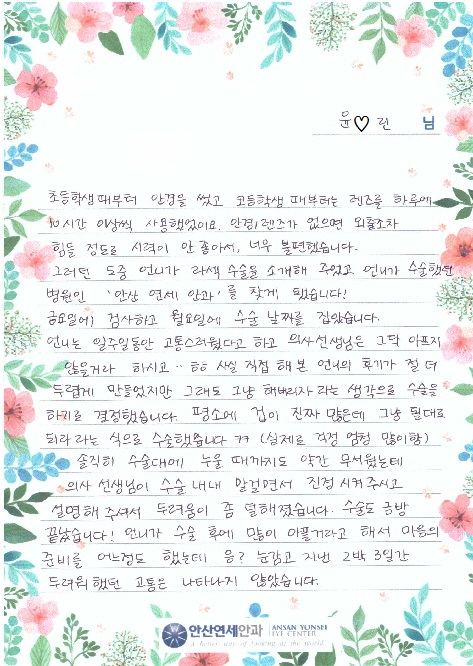 윤♡린 님
초등학생때부터 안경을 썼고 고등학생 때부터는 렌즈를 하루에
10시간 이상씩 사용했었어요. 안경, 렌즈가 없으면 외출조차
힘들 정도로 시력이 안 좋아서, 너무 불편했습니다.
그러던 도중 언니가 라섹 수술을 소개해 주었고 언니가 수술했던
병원인 '안산 연세 안과'를 찾게 됐습니다!
금요일에 검사하고 월요일에 수술 날짜를 잡았습니다.
언니는 일주일동안 고통스러웠다고 하고 의사선생님은 그닥 아프지
않을거라 하시고.. ㅎㅎ 사실 직접 해 본 언니의 후기가 절 더
두렵게 만들었지만 그래도 그냥 해버리자 라는 생각으로 수술을
하기로 결정했습니다. 평소에 겁이 진짜 많은데 그냥 될대로
되라 라는 식으로 수술했습니다 ㅋㅋ (실제로 걱정 엄청 많이함)
솔직히 수술대에 누울 때까지도 약간 무서웠는데
의사 선생님이 수술 내내 말걸면서 진정 시켜주시고
설명해 주셔서 두려움이 좀 덜해졌습니다. 수술도 금방
끝났습니다! 언니가 수술 후에 많이 아플거라고 해서 마음의
준비를 어느정도 했는데 응? 눈감고 지낸 2박 3일간
두려워 했던 고통은 나타나지 않았습니다.
안산연세안과 ANSAN YONSEI
EYE CENTER
a honor way of looking at the world.